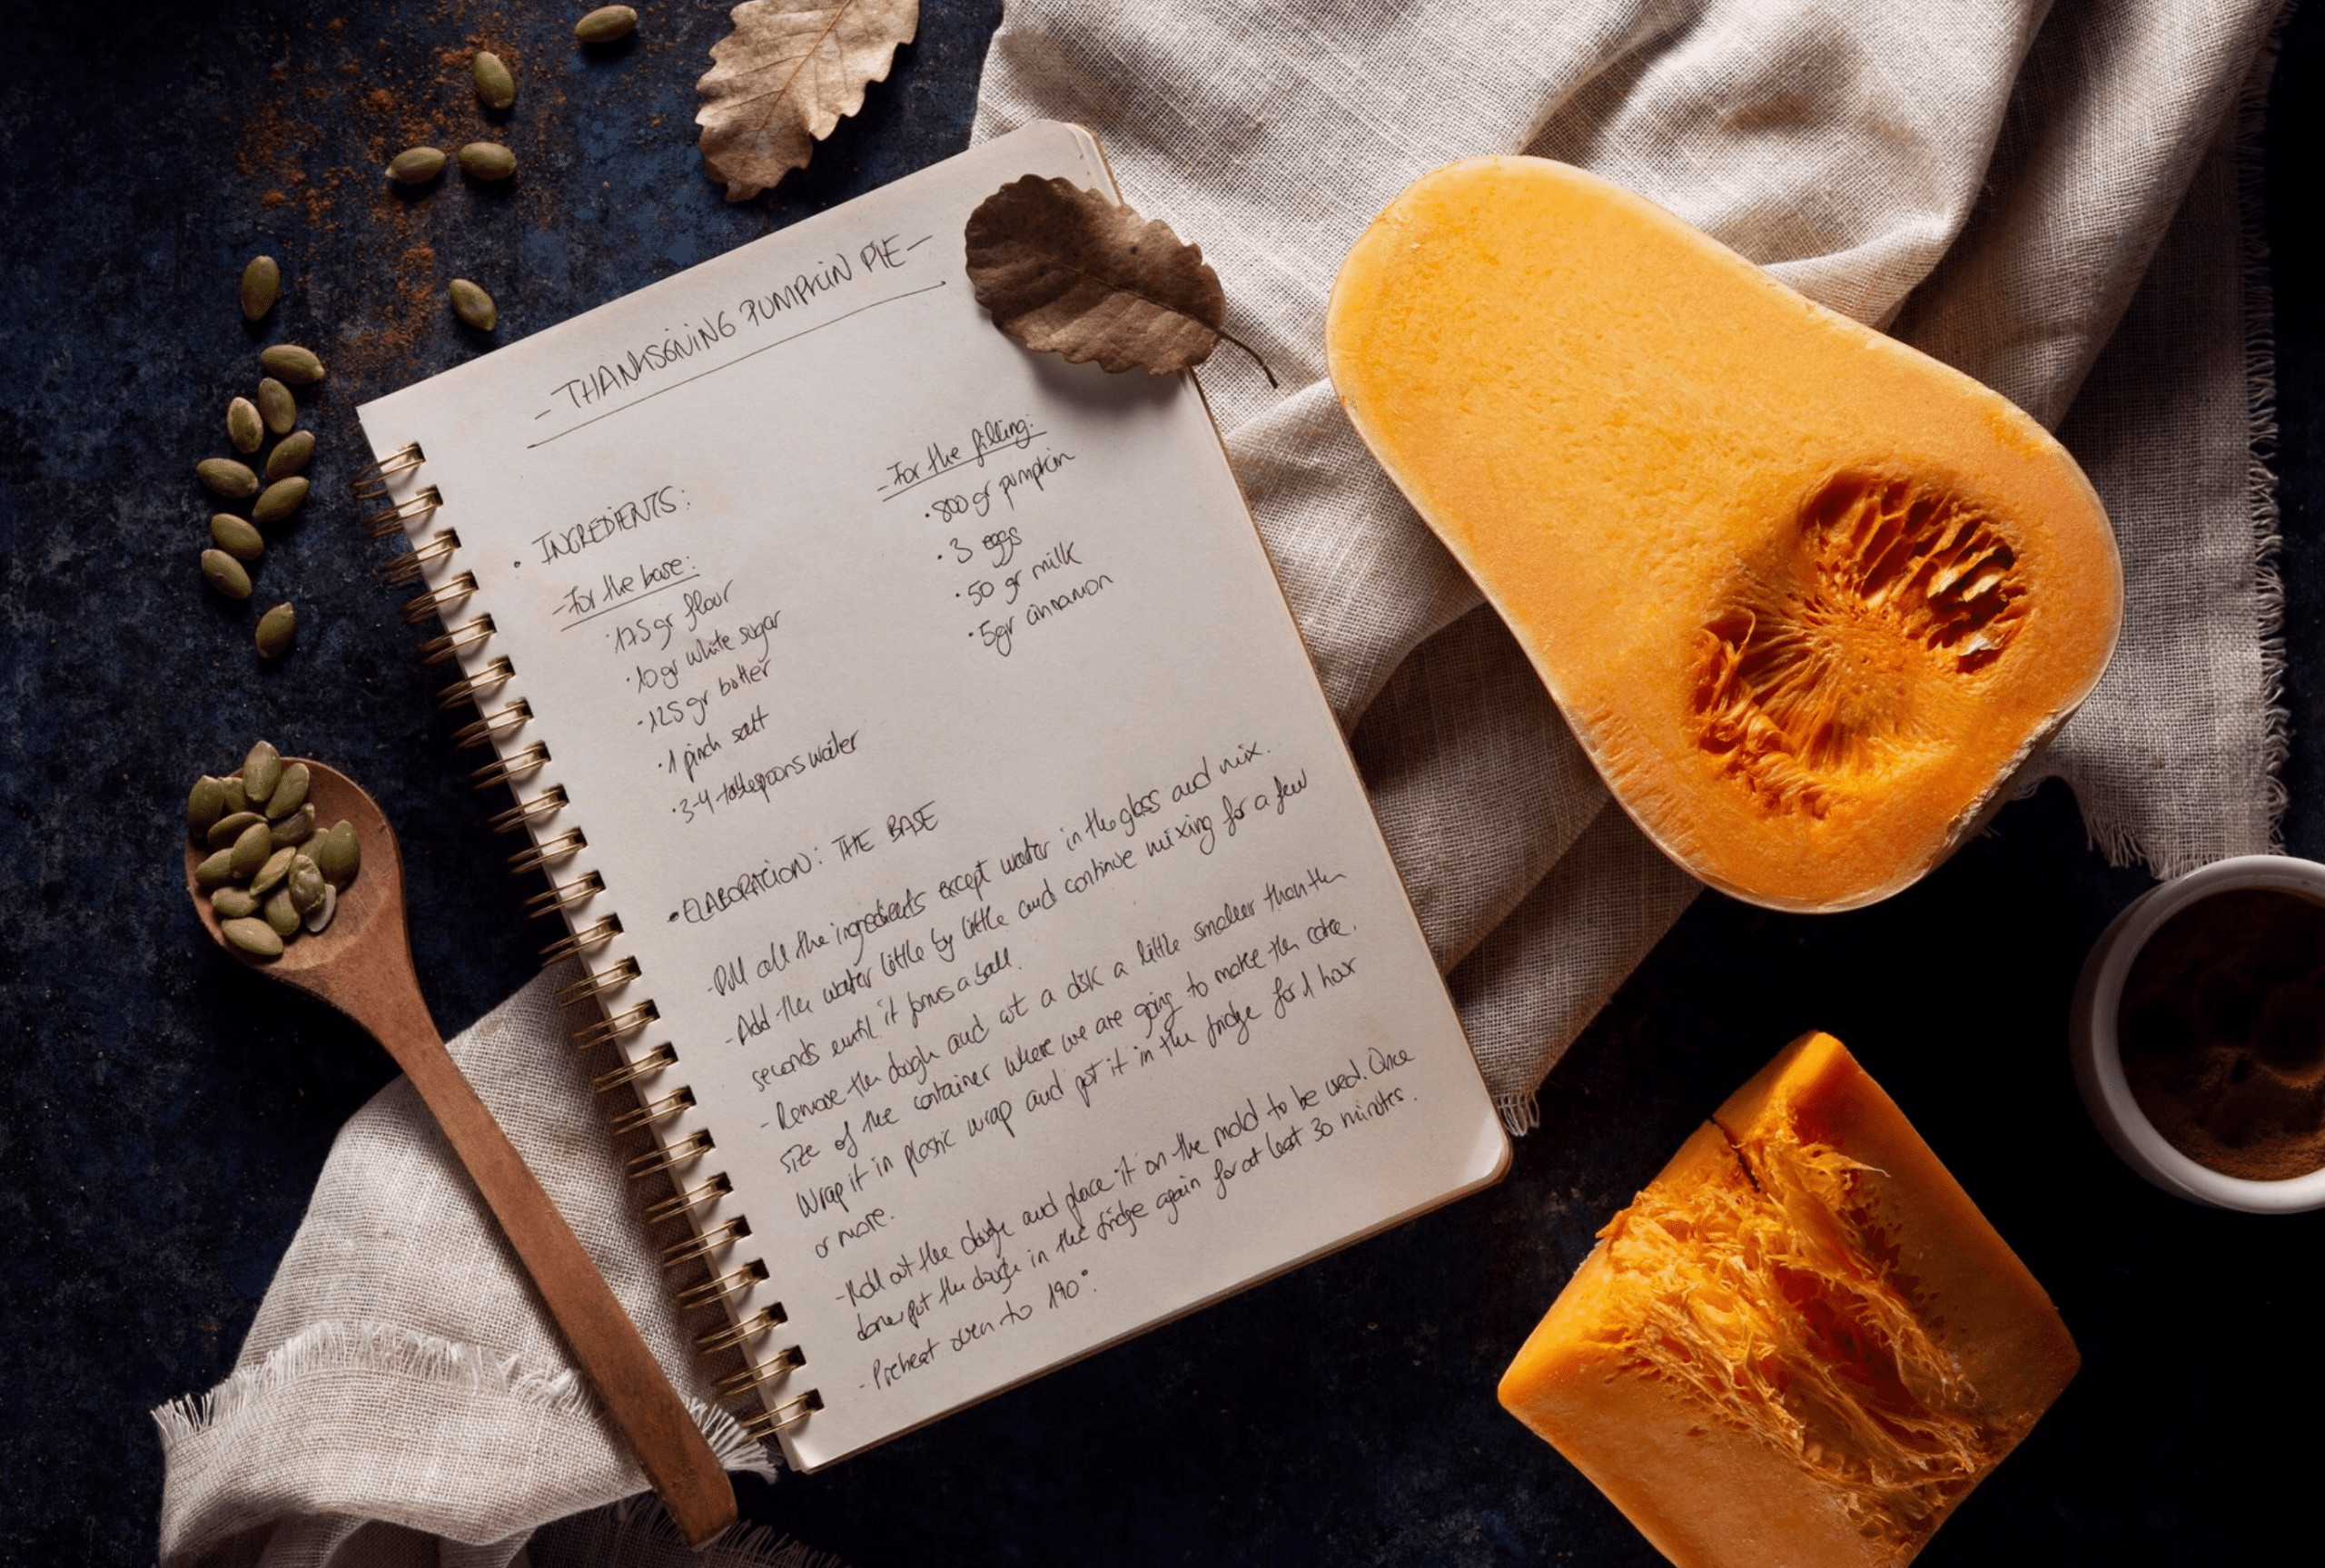 - THANKSGIVING PUMPKIN PIE -
• INGREDIENTS:
- For the base:
· 175 gr flour
· 10 gr white sugar
· 125 gr butter
· 1 pinch salt
· 3-4 tablespoons water
- For the filling:
· 800 gr pumpkin
· 3 eggs
· 50 gr milk
· 5gr cinnamon
• ELABORACION: THE BASE
- Put all the ingredients except water in the glass and mix.
- Add the water little by little and continue mixing for a few
seconds until it forms a ball.
- Remove the dough and cut a disk a little smaller than the
size of the container where we are going to make the cake.
Wrap it in plastic wrap and put it in the fridge for 1 hour
or more.
- Roll out the dough and place it on the mold to be used. Once
done put the dough in the fridge again for at least 30 minutes.
- Preheat oven to 190°.